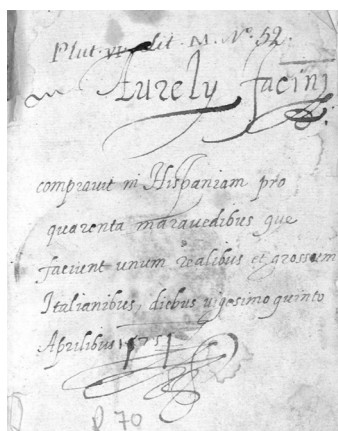 Plut. VI lit. M. N.º 52.
Aurelÿ facini
comprauit in Hispaniam pro
quarenta marauedibus que
faciunt unum realibus et grossum
Italianibus, diebus uigesimo quinto
Aprilibus 1575
R 70